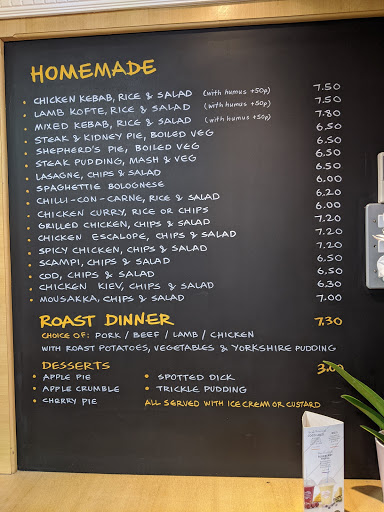 HOMEMADE
• CHICKEN KEBAB, RICE & SALAD (with humus +50p) 7.50
• LAMB KOFTE, RICE & SALAD (with humus +50p) 7.50
• MIXED KEBAB, RICE & SALAD (with humus +50p) 7.80
• STEAK & KIDNEY PIE, BOILED VEG 6.50
• SHEPHERD'S PIE, BOILED VEG 6.50
• STEAK PUDDING, MASH & VEG 6.50
• LASAGNE, CHIPS & SALAD 6.50
• SPAGHETTIE BOLOGNESE 6.00
• CHILLI-CON-CARNE, RICE & SALAD 6.20
• CHICKEN CURRY, RICE OR CHIPS 6.00
• GRILLED CHICKEN, CHIPS & SALAD 7.20
• CHICKEN ESCALOPE, CHIPS & SALAD 7.20
• SPICY CHICKEN, CHIPS & SALAD 7.20
• SCAMPI, CHIPS & SALAD 6.50
• COD, CHIPS & SALAD 6.50
• CHICKEN KIEV, CHIPS & SALAD 6.30
• MOUSAKKA, CHIPS & SALAD 7.00
ROAST DINNER 7.30
CHOICE OF: PORK / BEEF / LAMB / CHICKEN
WITH ROAST POTATOES, VEGETABLES & YORKSHIRE PUDDING
DESSERTS 3.00
• APPLE PIE • SPOTTED DICK
• APPLE CRUMBLE • TRICKLE PUDDING
• CHERRY PIE ALL SERVED WITH ICE CREAM OR CUSTARD